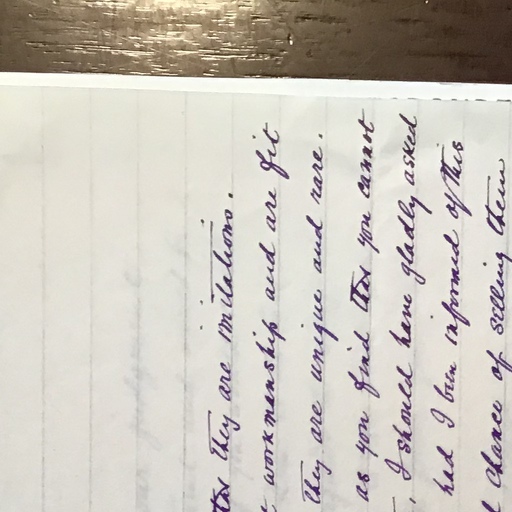 that they are imitations.
workmanship and are fit
they are unique and rare.
as you find that you cannot
, I should have gladly asked
had I been informed of this
chance of selling them